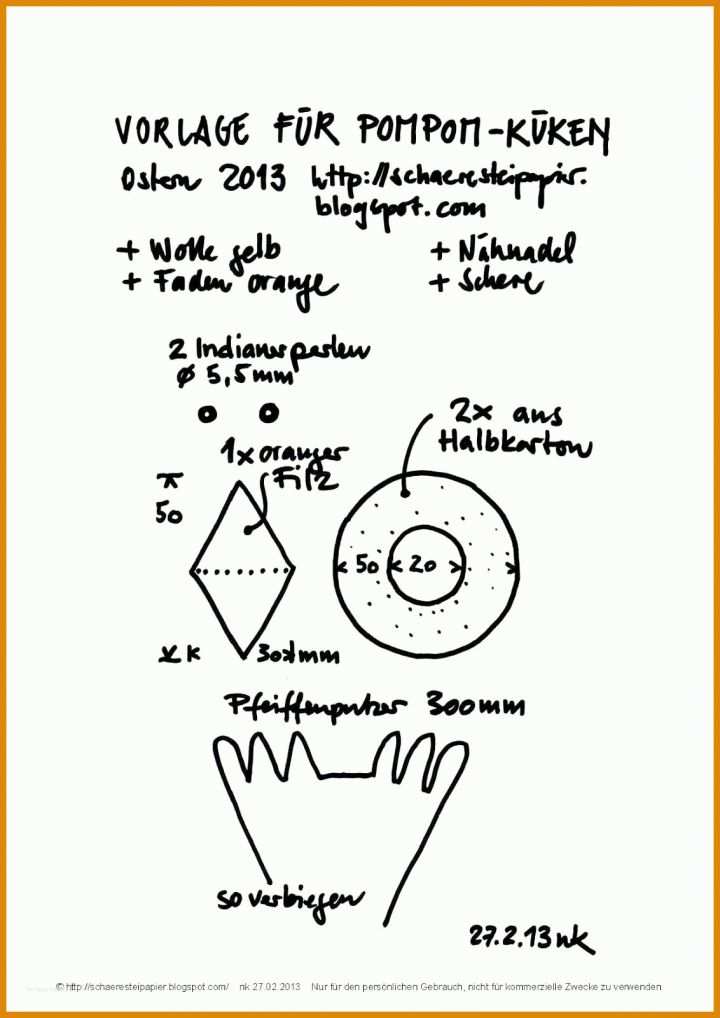 VORLAGE FÜR POMPOM-KÜKEN
Ostern 2013 http://schaeresteipapier.
blogspot.com
+ Wolle gelb + Nähnadel
+ Faden orange + Schere
2 Indianerperlen
Ø 5,5mm
2x aus
Halbkarton
1x oranger
Filz
50
50 20
30 mm
Pfeiffenputzer 300mm
so verbiegen
27.2.13 nk
© http://schaeresteipapier.blogspot.com/ nk 27.02.2013 Nur für den persönlichen Gebrauch, nicht für kommerzielle Zwecke zu verwenden